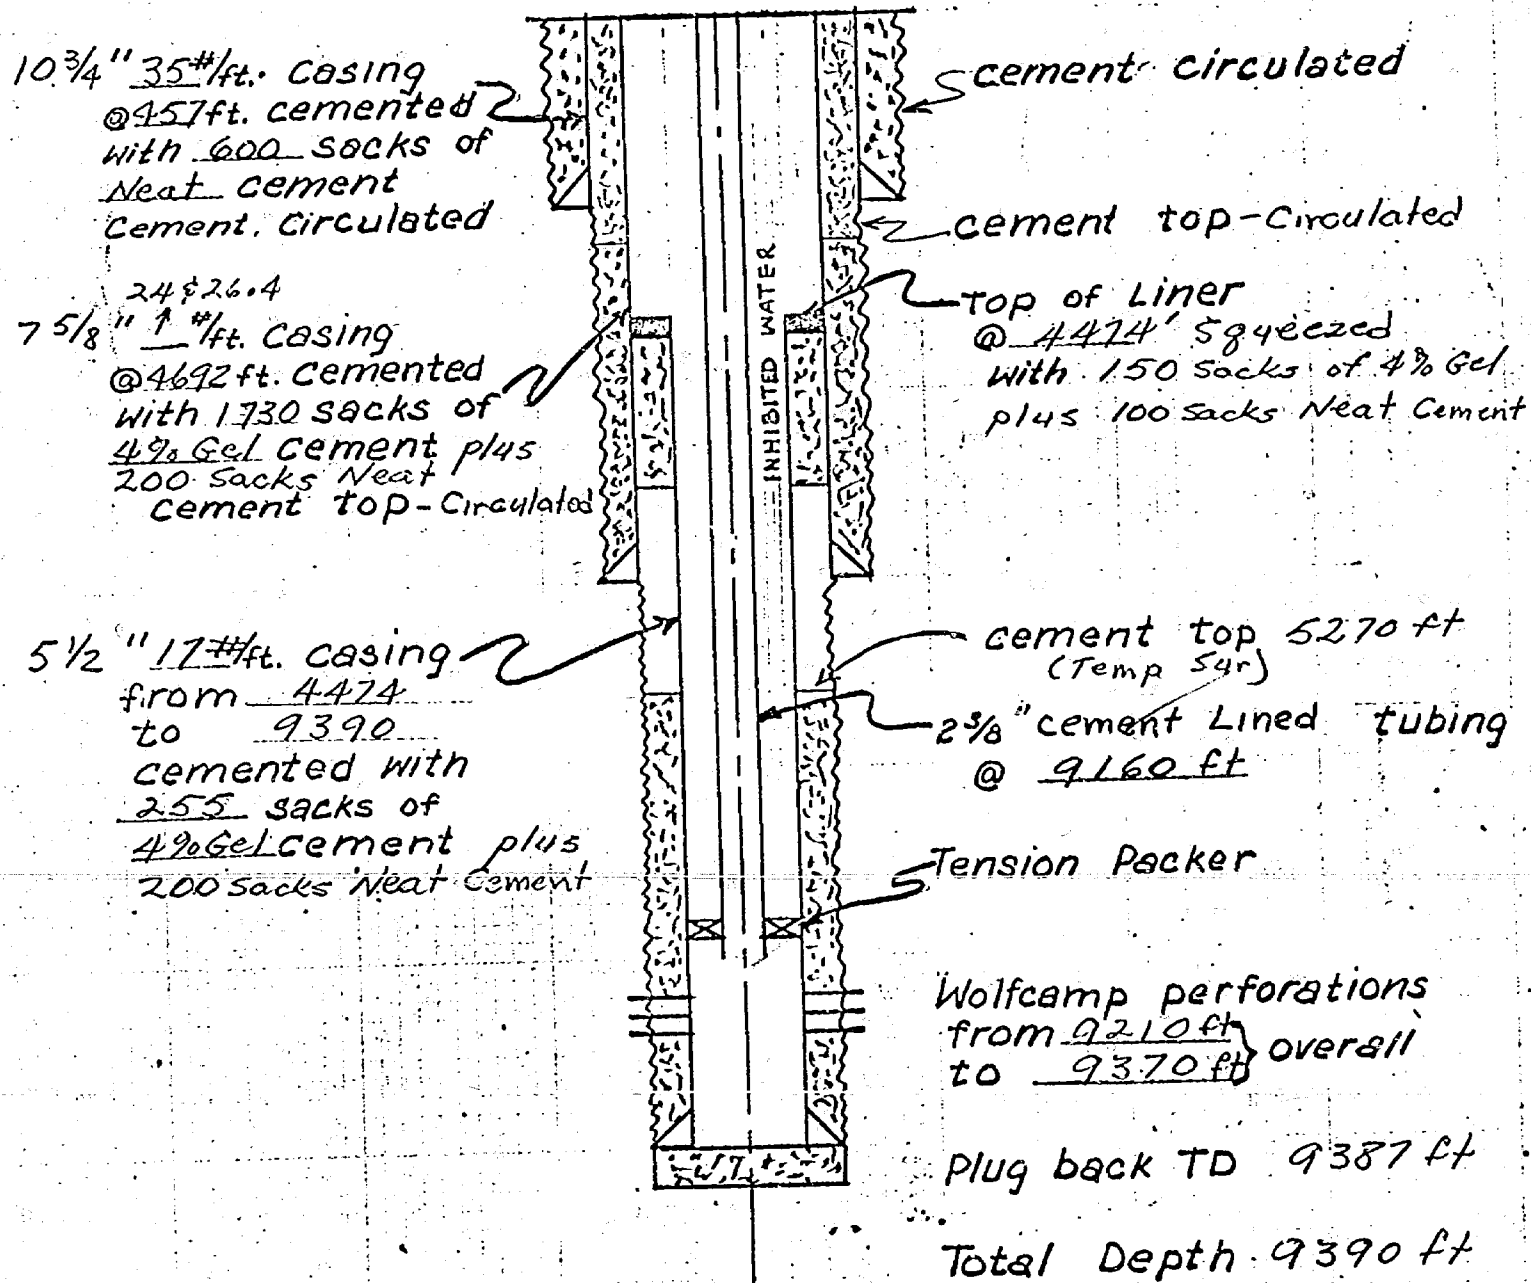 10 3/4" 35#/ft. Casing
@457ft. cemented
with 600 sacks of
Neat cement
Cement. Circulated
24 & 26.4
7 5/8" ↑ #/ft. Casing
@4692 ft. Cemented
with 1730 sacks of
4% Gel cement plus
200 Sacks Neat
Cement top-Circulated
5 1/2" 17#/ft. casing
from 4474
to 9390
cemented with
255 sacks of
4% Gel cement plus
200 Sacks Neat Cement
INHIBITED WATER
cement circulated
cement top-Circulated
Top of Liner
@ 4474' Sqyeezed
with 150 Sacks of 4% Gel
plus 100 Sacks Neat Cement
cement top 5270 ft
(Temp Sur)
2 3/8" cement Lined tubing
@ 9160 ft
Tension Packer
Wolfcamp perforations
from 9210 ft } overall
to 9370 ft
Plug back TD 9387 ft
Total Depth 9390 ft